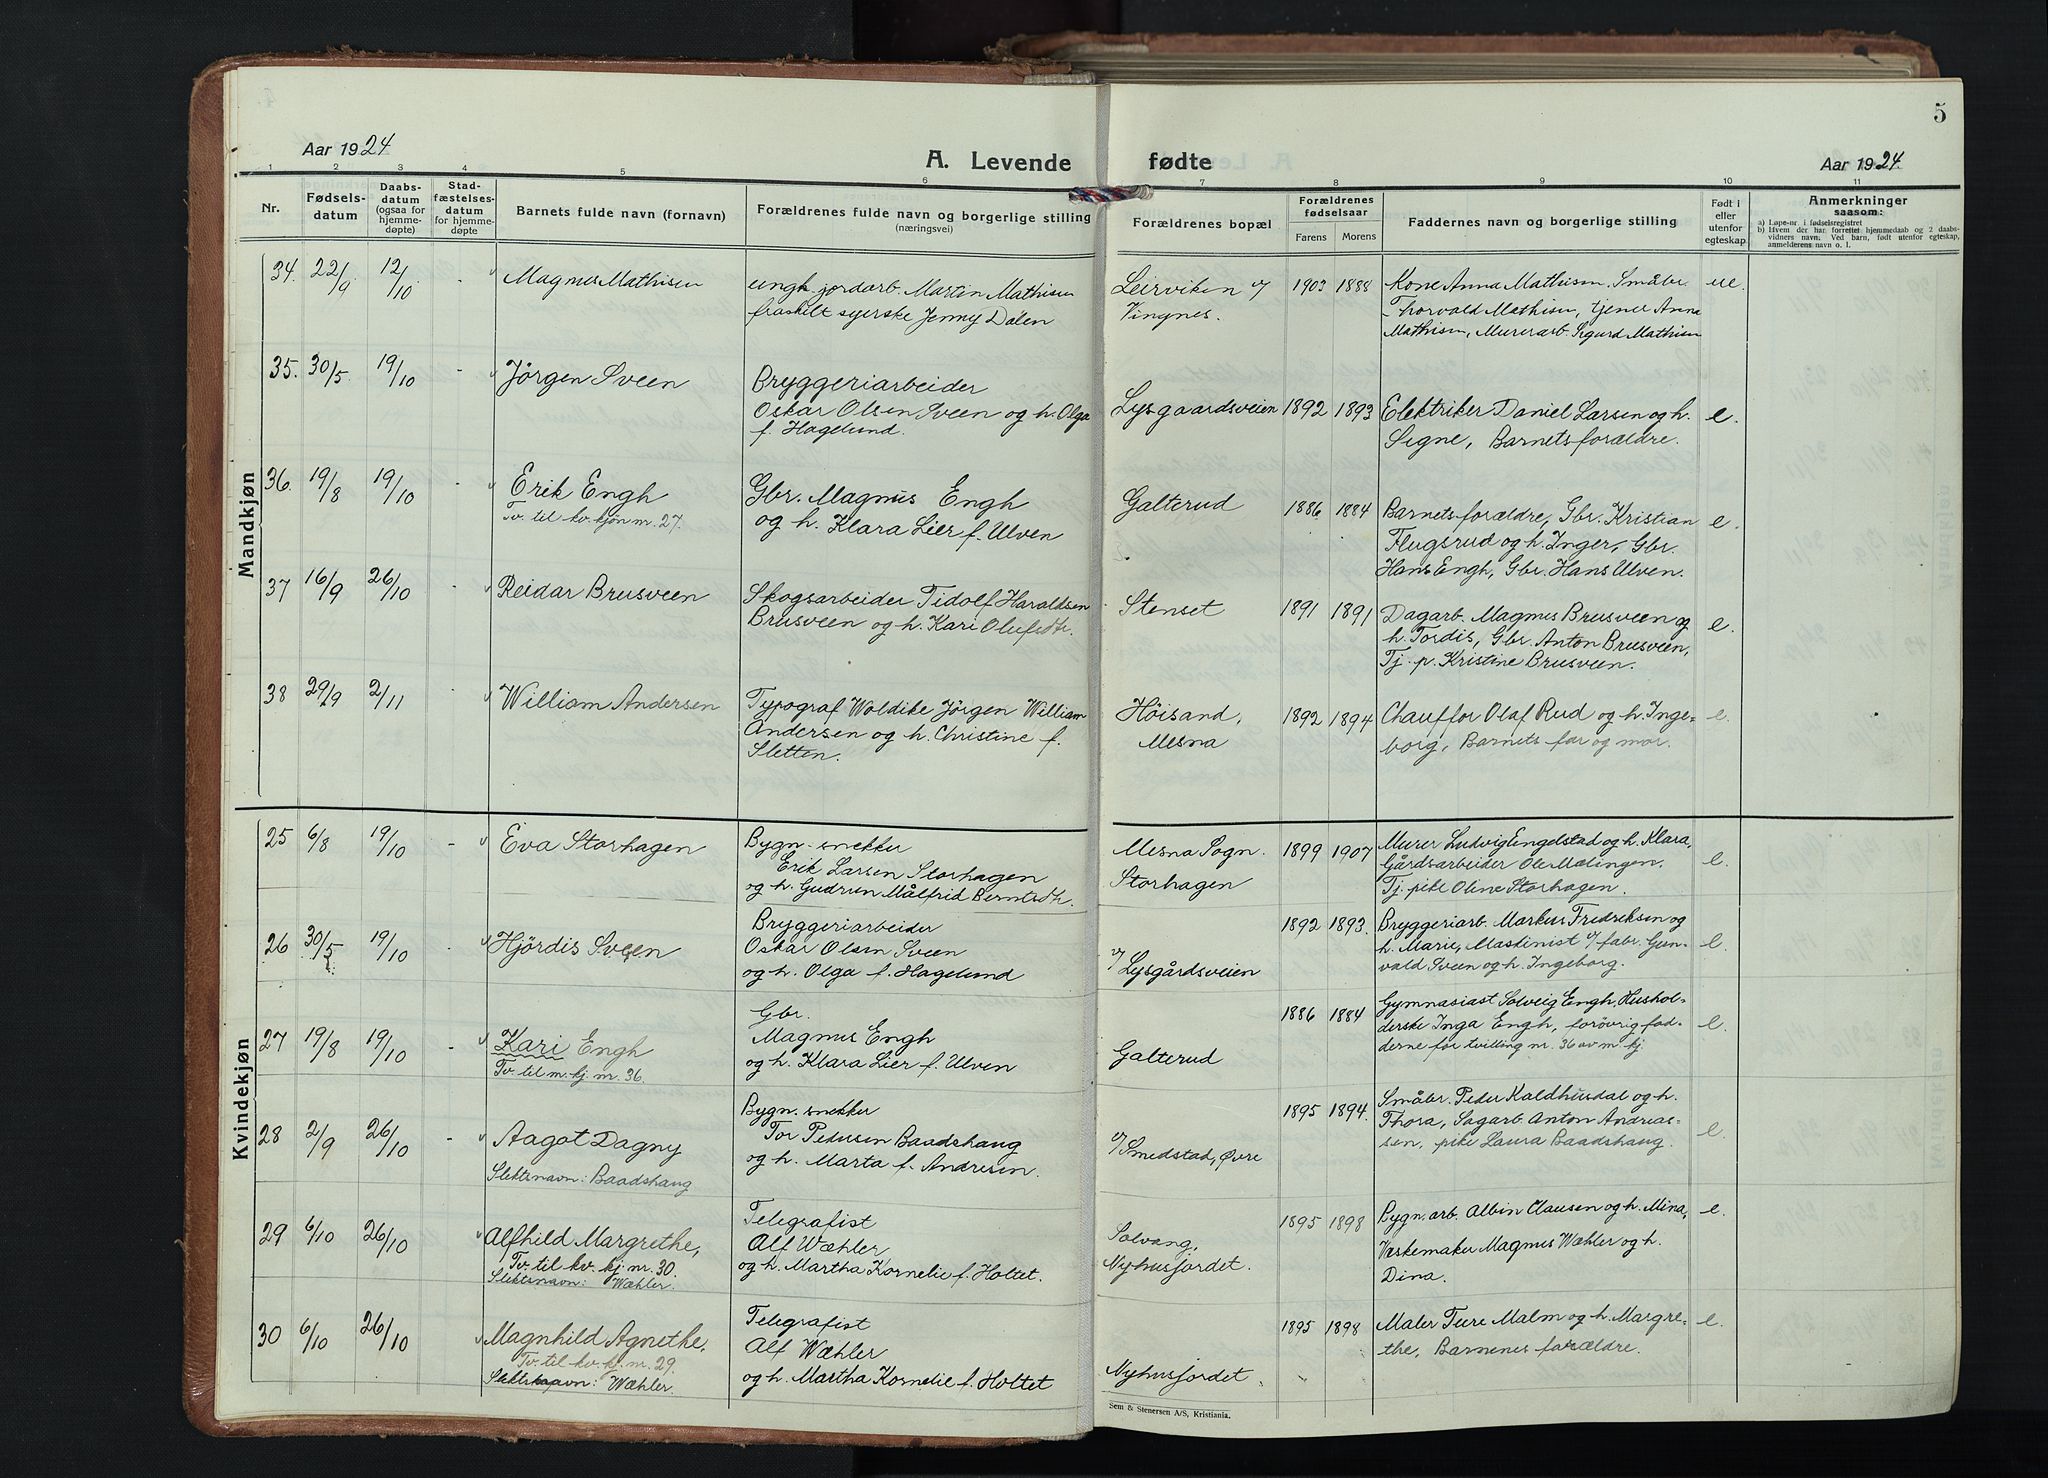 5
Aar 1924
A. Levende fødte
Aar 1924
1 2 3 4 5 6 7 8 9 10 11
Nr.
Fødsels-
datum
Daabs-
datum
(ogsaa for
hjemme-
døpte)
Stad-
fæstelses-
datum
for hjemme-
døpte
Barnets fulde navn (fornavn)
Forældrenes fulde navn og borgerlige stilling
(næringsvei)
Forældrenes bopæl
Forældrenes
fødselsaar
Farens Morens
Faddernes navn og borgerlige stilling
Født i
eller
utenfor
egteskap.
Anmerkninger
saasom:
a) Løpe-nr. i fødselsregistret
b) Ifvem der har forrettet hjemmedaab og 2 daabs-
vidners navn. Ved barn, født utenfor egteskap,
anmelderens navn o. l.
Mandkjøn
34. 22/9 12/10 - Magnus Mathisen
ungk. jordarb. Martin Mathisen
fraskilt syerske Jenny Dalen
Leirviken v/
Vingnes.
1903 1888
Kone Anna Mathisen, Småbr.
Thorvald Mathisen, tjener Anna
Mathisen, Murerarb. Sigurd Mathisen
ue.
35. 30/5 19/10 - Jörgen Sveen
Bryggeriarbeider
Oskar Olsen Sveen og h. Olga
f. Hagelund.
Lysgaardsveien
1892 1893
Elektriker Daniel Larsen og h.
Signe, Barnets forældre.
e.
36. 19/8 19/10 - Erik Engh
Tv. til kv. kjön nr. 27.
Gbr. Magnus Engh
og h. Klara Lier f. Ulven
Galterud
1886 1884
Barnets forældre, Gbr. Kristian
Flugsrud og h. Inger, Gbr.
Hans Engh, Gbr. Hans Ulven.
e.
37 16/9 26/10 - Reidar Brusveen
Skogsarbeider Tidolf Haraldsen
Brusveen og h. Kari Olufsdtr.
Stenset
1891 1891
Dagarb. Magnus Brusveen og
h. Tordis, Gbr. Anton Brusveen,
Tj. p. Kristine Brusveen.
e.
38 29/9 2/11 - William Andersen
Typograf Woldike Jörgen William
Andersen og h. Christine f.
Sletten.
Höisand,
Mesna
1892 1894
Chauffør Olaf Rud og h. Inge-
borg, Barnets far og mor.
e.
Kvindekjøn
25 6/8 19/10 - Eva Storhagen
Bygn.-snekker
Erik Larsen Storhagen
og h. Gudrun Målfrid Berntsdtr.
Mesna Sogn.
Storhagen
1899 1907
Murer Ludvig Engelstad og h. Klara,
Gårdsarbeider Ole Mælingen,
Tj. pike Oline Storhagen.
e.
26 30/5 19/10 Hjördis Sveen
Bryggeriarbeider
Oskar Olsen Sveen
og h. Olga f. Hagelund
v/ Lysgårdsveien
1892 1893.
Bryggeriarb. Markus Fredriksen og
h. Marie, Maskinist v/ fabr. Gun-
vald Sveen og h. Ingeborg.
e.
27 19/8 19/10 - Kari Engh
Tv. til m. kj. nr. 36.
Gbr.
Magnus Engh
og h. Klara Lier f. Ulven
Galterud
1886 1884
Gymnasiast Solveig Engh, Hushol-
derske Inga Engh, forøvrig fad-
derne for tvilling nr. 36 av m. kj.
e.
28 2/9 26/10 - Aagot Dagny
Slektsnavn: Baadshaug
Bygn. snekker
Tor Pedersen Baadshaug
og h. Marta f. Andresen.
v/ Smedstad, Øvre
1895 1894.
Småbr. Peder Kaldhusdal og h.
Thora, Sagarb. Anton Andreas-
sen, pike Laura Baadshaug.
e.
29 6/10 26/10 Alfhild Margrethe,
Tv. til kv. kj. nr. 30.
Slektsnavn: Wæhler.
Telegrafist
Alf Wæhler
og h. Martha Kornelie f. Holtet.
Solvang,
Nyhusjordet.
1895 1898
Bygn. arb. Albin Clausen og h. Mina,
Væskemaker Magnus Wæhler og h.
Dina.
e.
30 6/10 26/10 Magnhild Agnethe,
Tv. til kv. kj. nr. 29.
Slektsnavn: Wæhler.
Telegrafist
Alf Wæhler
og h. Martha Kornelie f. Holtet
Nyhusjordet.
1895 1898
Maler Ture Malm og h. Margre-
the, Barnenes forældre.
e.
Sem & Stenersen A/S, Kristiania.